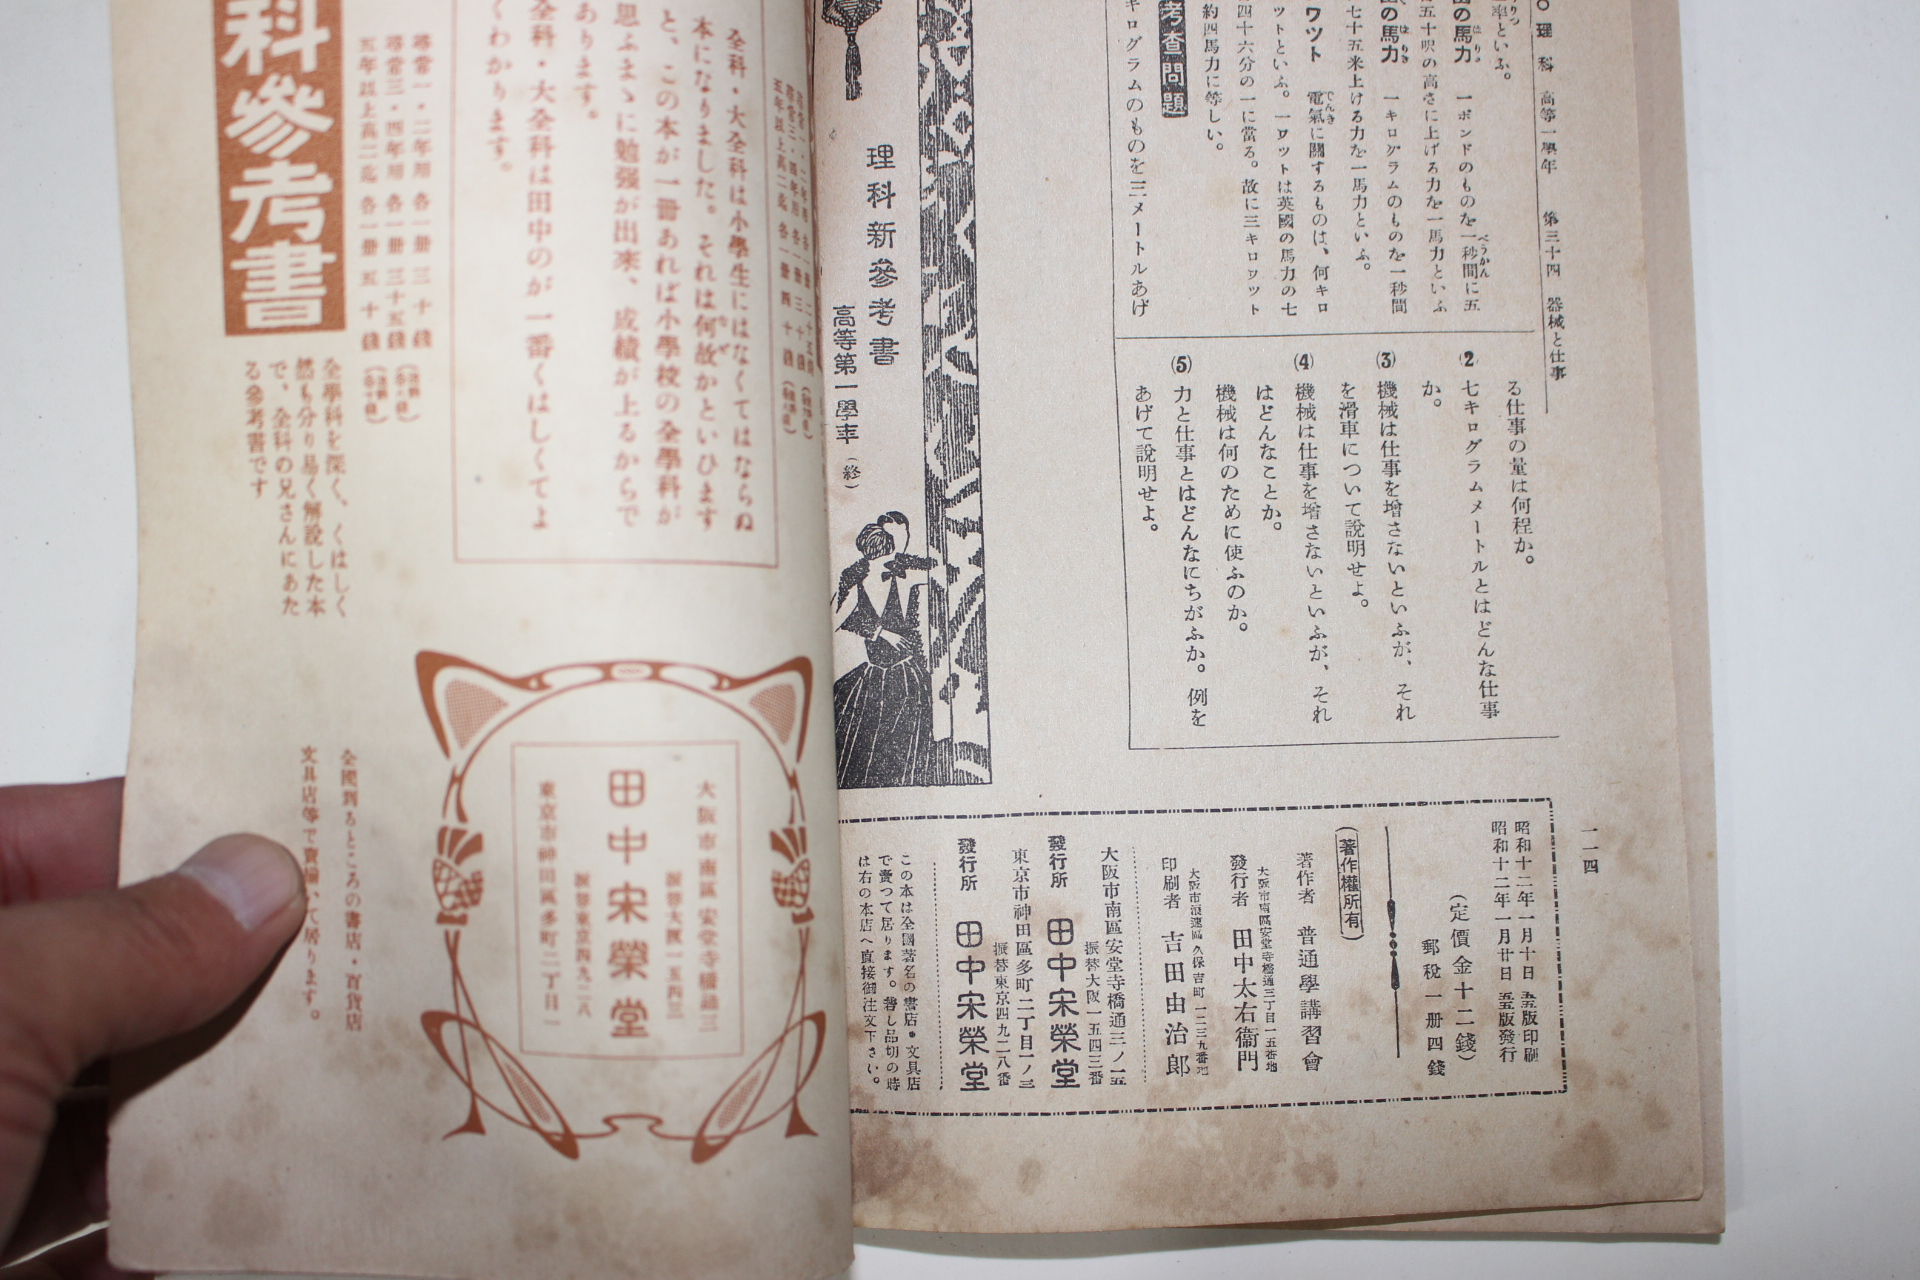 〇理科 高等一學年 第三十四 器械と仕事
率といふ。
の馬力 一ポンドのものを一秒間に五
五十呎の高さに上げる力を一馬力といふ
の馬力 一キログラムのものを一秒間
七十五米上げる力を一馬力といふ。
ワット 電氣に關するものは、何キロ
ットといふ。一ワットは英國の馬力の七
四十六分の一に當る。故に三キロワット
約四馬力に等しい。
考査問題
キログラムのものを三メートルあげ
る仕事の量は何程か。
(2) 七キログラムメートルとはどんな仕事
か。
(3) 機械は仕事を增さないといふが、それ
を滑車について説明せよ。
(4) 機械は仕事を增さないといふが、それ
はどんなことか。
機械は何のために使ふのか。
(5) 力と仕事とはどんなにちがふか。例を
あげて説明せよ。
理科新參考書
高等第一學年(終)
一一四
昭和十二年一月十日 五版印刷
昭和十二年一月廿日 五版發行
(定價金十二錢)
郵税一册四錢
(著作權所有)
著作者 普通學講習會
大阪市南區安堂寺橋通三丁目一五番地
發行者 田中太右衞門
大阪市浪速區久保吉町一二三九番地
印刷者 吉田由治郎
大阪市南區安堂寺橋通三ノ一五
振替大阪一五四三番
發行所 田中宋榮堂
東京市神田區多町二丁目一ノ三
振替東京四九二八番
發行所 田中宋榮堂
この本は全國著名の書店・文具店
で賣つて居ります。若し品切の時
は右の本店へ直接御注文下さい。
全科・大全科は小學生にはなくてはならぬ
本になりました。それは何故かといひます
と、この本が一冊あれば小學校の全學科が
思ふまゝに勉强が出來、成績が上るからで
あります。
全科・大全科は田中のが一番くはしくてよ
くわかります。
尋常一・二年用 各一册 三十錢
尋常三・四年用 各一册 三十五錢
五年以上高二迄 各一册 五十錢
科參考書
全學科を深く、くはしく
然も分り易く解説した本
で、全科の兄さんにあた
る參考書です
大阪市南區安堂寺橋通三
振替大阪一五四三
田中宋榮堂
振替東京四九二八
東京市神田區多町二丁目一
全國到るところの書店・百貨店
文具店等で賣捌いて居ります。